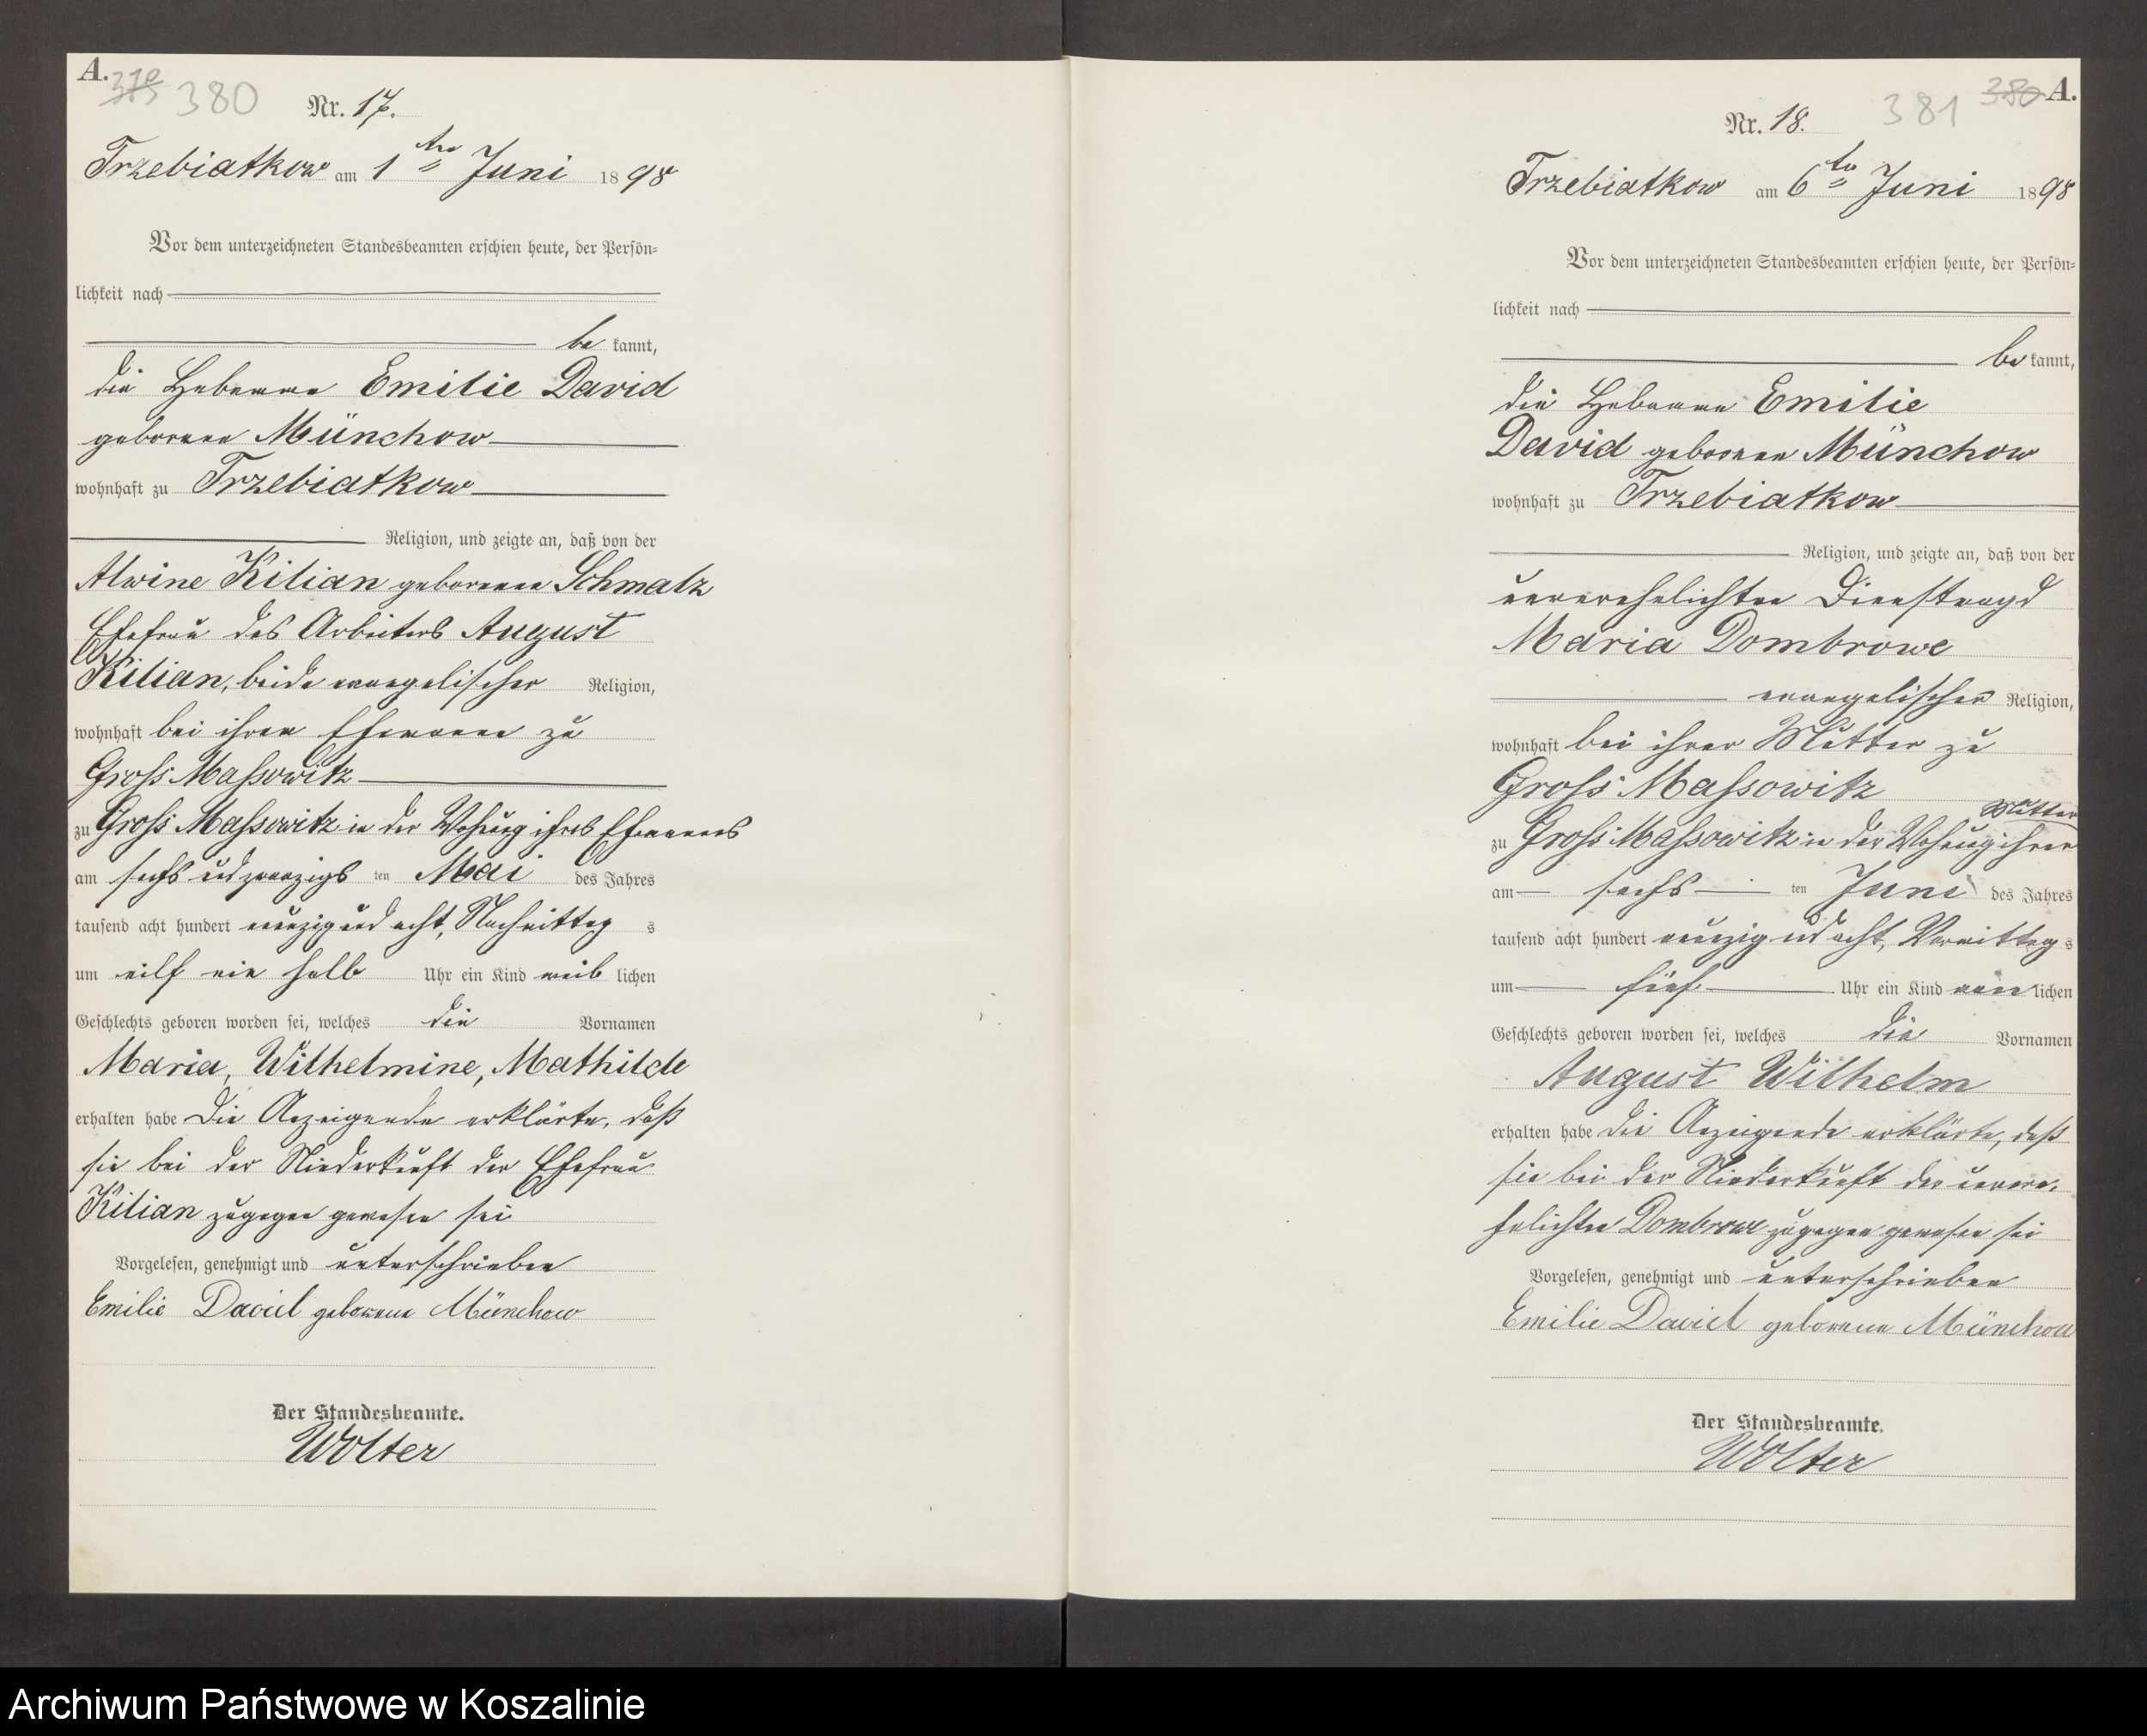 A.
379 380
Nr. 17.
Trzebiatkow am 1 ten Juni 1898
Vor dem unterzeichneten Standesbeamten erschien heute, der Persön=
lichkeit nach
be kannt,
die Hebamme Emilie David
geborene Münchow
wohnhaft zu Trzebiatkow
Religion, und zeigte an, daß von der
Alwine Kilian geborenen Schmalz
Ehefrau des Arbeiters August
Kilian, beide evangelischer Religion,
wohnhaft bei ihrem Ehemanne zu
Gross Massowitz
zu Gross Massowitz in der Wohnung ihres Ehemannes
am sechs und zwanzigs ten Mai des Jahres
tausend acht hundert neunzig und acht, Nachmittag s
um eilf ein halb Uhr ein Kind weib lichen
Geschlechts geboren worden sei, welches die Vornamen
Maria, Wilhelmine, Mathilde
erhalten habe Die Anzeigende erklärte, daß
sie bei der Niederkunft der Ehefrau
Kilian zugegen gewesen sei
Vorgelesen, genehmigt und unterschrieben
Emilie David geborene Münchow
Der Standesbeamte.
Wolter
381 380 A.
Nr. 18.
Trzebiatkow am 6 ten Juni 1898
Vor dem unterzeichneten Standesbeamten erschien heute, der Persön=
lichkeit nach
be kannt,
die Hebamme Emilie
David geborene Münchow
wohnhaft zu Trzebiatkow
Religion, und zeigte an, daß von der
unverehelichten Dienstmagd
Maria Dombrowe
evangelischer Religion,
wohnhaft bei ihrer Mutter zu
Gross Massowitz
zu Gross Massowitz in der Wohnung ihrer Mutter
am sechs ten Juni des Jahres
tausend acht hundert neunzig und acht, Vormittag s
um fünf Uhr ein Kind männ lichen
Geschlechts geboren worden sei, welches die Vornamen
August Wilhelm
erhalten habe Die Anzeigende erklärte, daß
sie bei der Niederkunft der unvere-
helichten Dombrowe zugegen gewesen sei
Vorgelesen, genehmigt und unterschrieben
Emilie David geborene Münchow
Der Standesbeamte.
Wolter
Archiwum Państwowe w Koszalinie